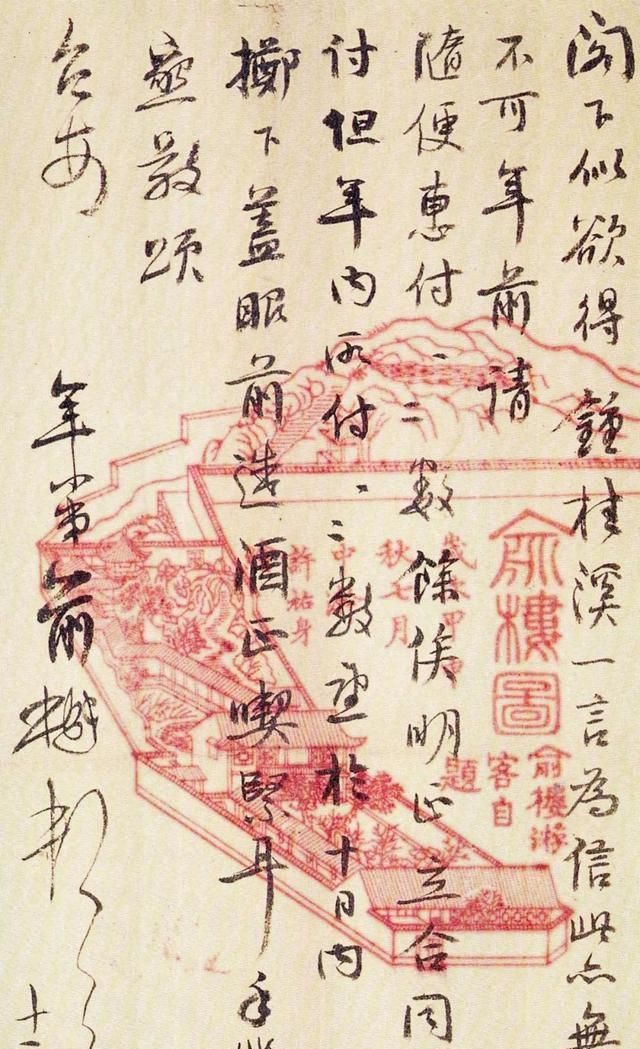 閣下似欲得鍾桂溪一言為信此亦無
不可年前請
隨便惠付一二數餘俟明正立合同
付但年內所付一二數望於十日內
擲下蓋眼前造酒正喫緊耳手
敬頌
台安
年小弟俞樾頓
十
俞樓圖
俞樓游
客自
題
秋七月
許祐身